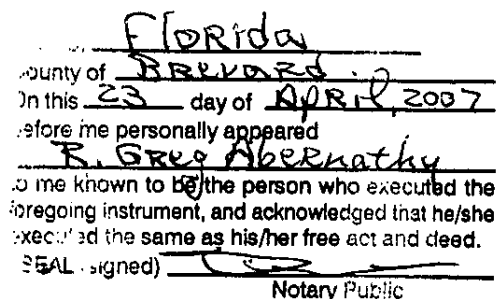 Florida
County of Brevard
On this 23 day of April, 2007
before me personally appeared
R. Greg Abernathy
to me known to be the person who executed the
foregoing instrument, and acknowledged that he/she
executed the same as his/her free act and deed.
SEAL signed)
Notary Public